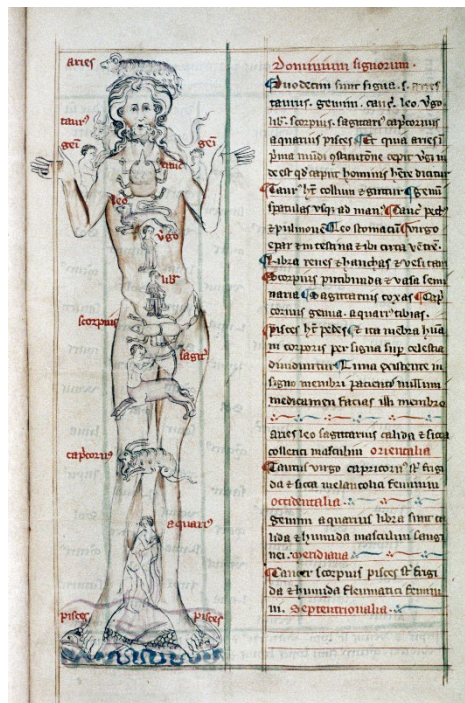 aries
taur⁹
gem̄
gem̄
cauc̄
leo
v̓go
lib̃
scorpius
sagit̃
cap̃cornus
aquari⁹
pisces
pisces
Dominium signorum ·
Duodecim sunt signa · s · aries
taurus · gemini · canc̃ · leo · v̓go
lib̃ · scorpius · sagitari⁹ cap̃cornus
aquarius pisces Et quia aries ī
de est qd̓ caput hominis hēre dicitur
Taur⁹ hт̄ collum & guttur Gemin̄
spatulas vsq̨ ad man⁹ Canc̃ pect⁹
& pulmonē Leo stomacū Virgo
epar & intestina & ibi circa vētrē
Libra renes & hanchas & vesicam
Scorpius pūbunda & vasa semi
naria Sagittarius coxas Cap̃
cornus genua · aquari⁹ tibias ·
pisces hт̄ pedes & ita mēbra hūa
ni corporis per signa sup̄ celestia
diuiduntur Luna existente in
signo membri patientis nullum
medicamen facias illi membro
aries leo sagittarius calida & sicca
collerici masculini orientalia
Taurus virgo capricorn⁹ st̄ frigi
da & sicca melancolia feminini
occidentalia ·
gemini aquarius libra sunt ca
lida & humida masculini sangui
nei · meridiana
Cancer scorpius pisces st̄ frigi
da & humida fleumatici femini
ni · Septentrionalia ·